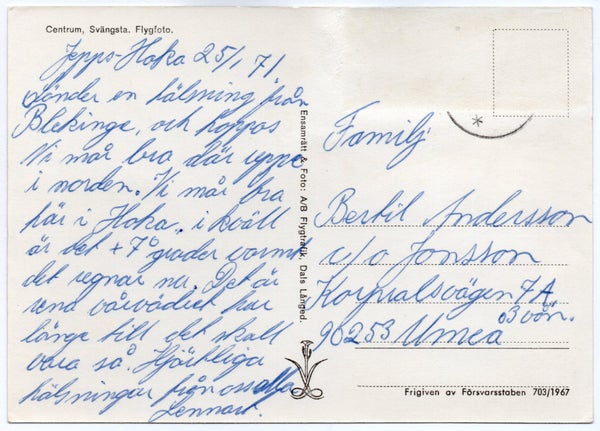 Centrum, Svängsta. Flygfoto.
Jepps-Hoka 25/1 71
Sänder en hälsning från
Blekinge, och hoppas
Ni mår bra där uppe
i norden. Vi mår bra
här i Hoka. i kväll
är det +7° grader varmt
det regnar nu. Det är
rena vårvädret har
länge till det skall
vara så. Hjärtliga
hälsningar från oss alla
Lennart.
Ensamrätt & Foto: A/B Flygtrafik, Dals Långed.
Familj
Bertil Andersson
c/o Jonsson
Korpralsvägen 7A
3 vån.
90253 Umeå
Frigiven av Försvarsstaben 703/1967